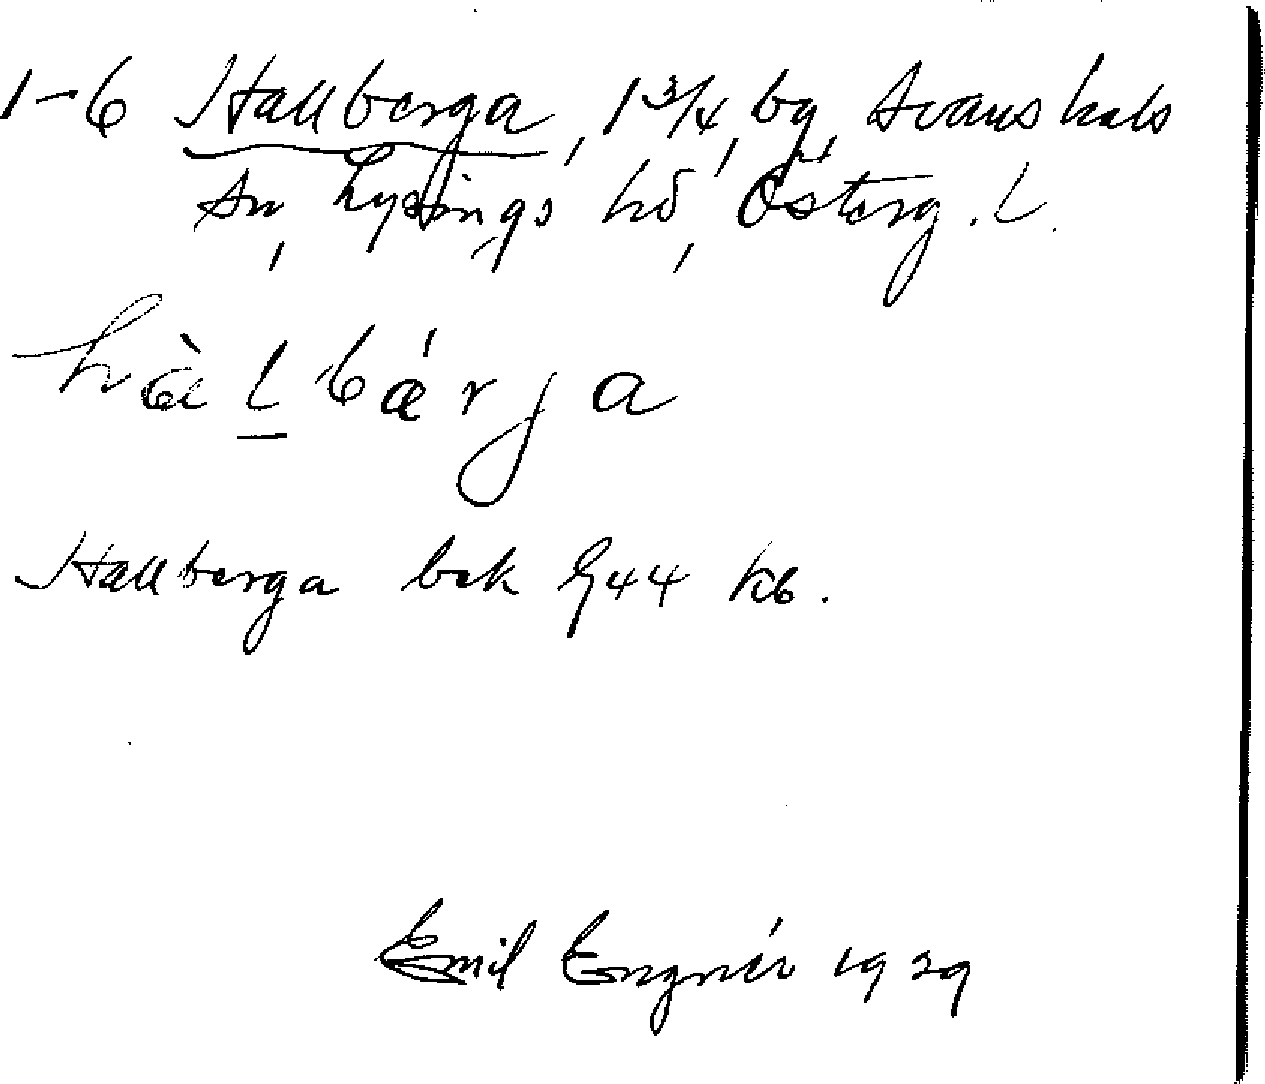 1-6 Hallberga, 1 3/4, by, Svanshals
sn, Lysings hd, Österg. L.
hàlbǽrja
Hallberga bek G44 Kb.
Emil Engnér 1929